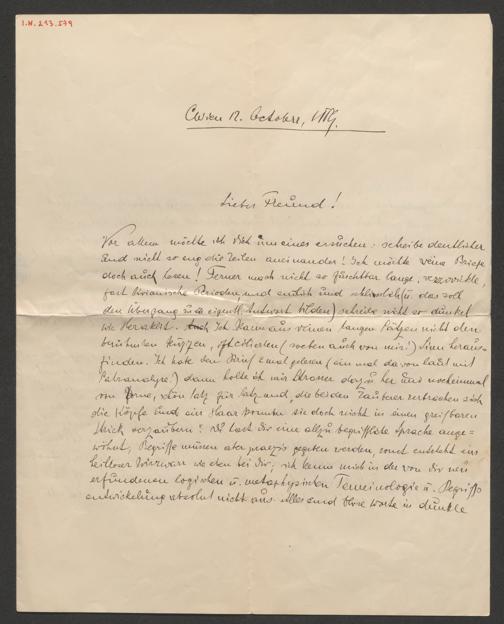 I.N. 213.579
Wien 12. Octobre,
Lieber Freund!
Vor allem möchte ich Dich um eines ersuchen: schreibe deutlicher
und nicht so eng die Zeilen aneinander! Ich möchte Deine Briefe
doch auch lesen! Ferner mach nicht so furchtbar lange, verzwickte,
fast Perioden, und endlich und schließlich (u. das soll
den Übergang zur eigentl. Antwort bilden) schreibe nicht so dunkel
wie Heraklit. Auch ich kann aus Deinen langen Sätzen nicht den
berühmten kurzen, (soeben auch von mir!) Sinn heraus-
finden. Ich habe den Brief 2 mal gelesen (ein mal davon laut mit
) dann holte ich mir Strasser dazu her uns nocheinmal
von vorne, schön Satz für Satz und, die beiden zerbrachen sich
die Köpfe und ein Haar konnten sie doch nicht in einen greifbaren
Strick verzaubern! Du hast Dir eine allzu begriffliche Sprache ange=
wöhnt, Begriffe müssen aber praezis gegeben werden, sonst entsteht ein
heilloser Wirrwarr wie eben bei Dir; ich kenne mich in der von Dir neu
erfundenen logischen u. metaphysischen Terminologie u. Begriffs
entwickelung absolut nicht aus. Alles sind Worte in dunkle